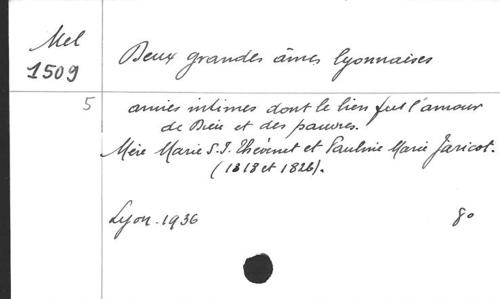 Mel
1509
Deux grandes âmes lyonnaises
5
amies intimes dont le lien fut l'amour
de Dieu et des pauvres.
Mère Marie S.T. Thévenet et Pauline Marie Jaricot.
(1818 et 1826).
Lyon. 1936
80